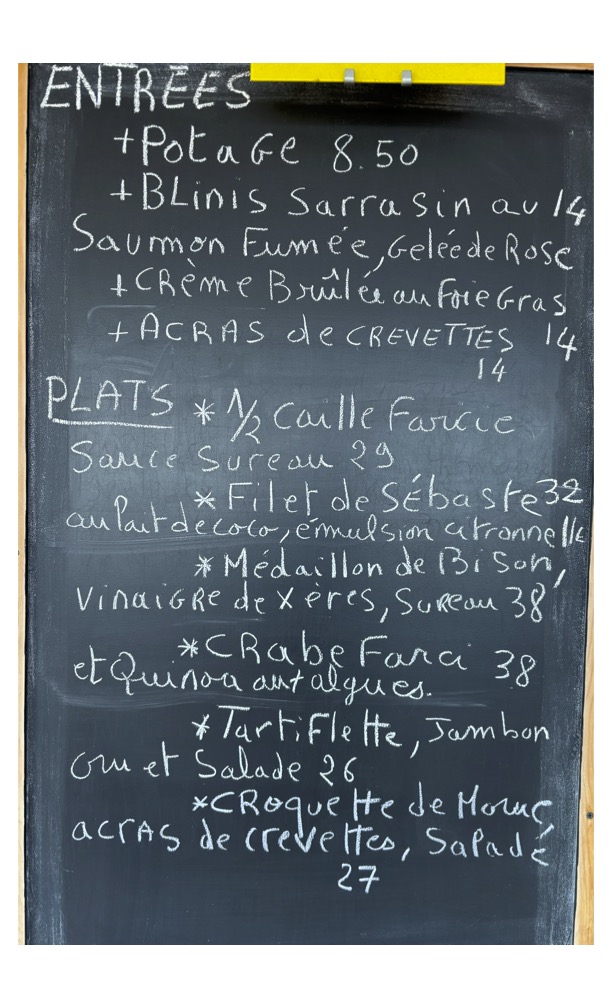 ENTRÉES
+ Potage 8.50
+ Blinis Sarrasin au 14
Saumon Fumée, Gelée de Rose
+ Crème Brûlée au Foie Gras
+ ACRAS de CREVETTES 14
14
PLATS * 1/2 Caille Farcie
Sauce Sureau 29
* Filet de Sébaste 32
au lait de coco, émulsion citronnelle
* Médaillon de Bison,
Vinaigre de Xérès, Sureau 38
* Crabe Farci 38
et Quinoa aux algues.
* Tartiflette, Jambon
cru et Salade 26
* Croquette de Morue,
acras de crevettes, Salade
27